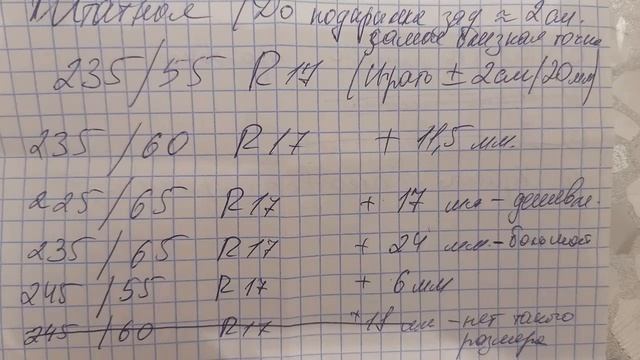 Штатной (До подкрылка зад ≈ 2см.
самая близкая точка
235/55 R17 (Играть ± 2см/20мм)
235/60 R17 + 11,5 мм.
225/65 R17 + 17 мм - дешевы.
235/65 R17 + 24 мм -
245/55 R17 + 6 мм
245/60 R17 +18 мм - нет такого
размера